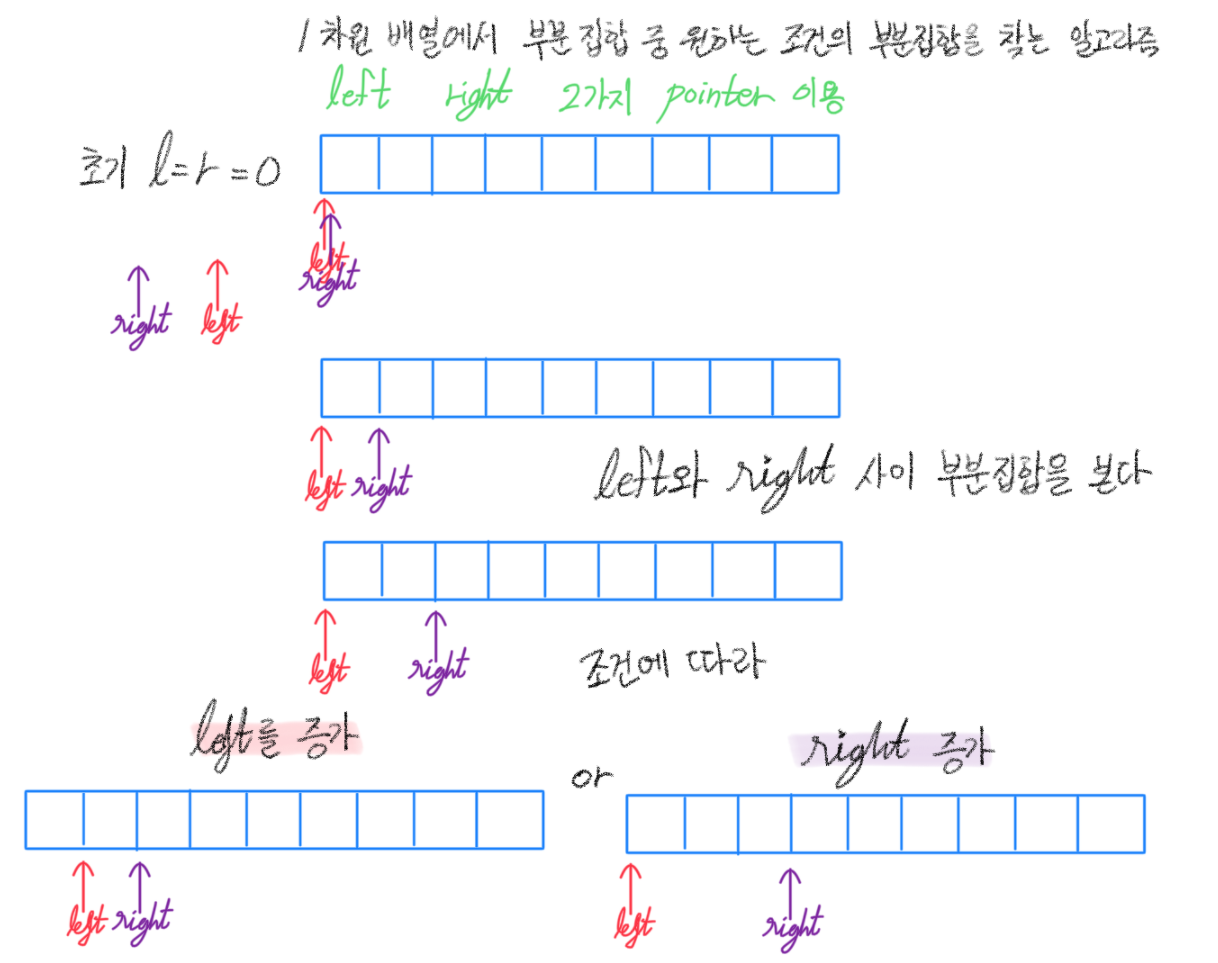 1차원 배열에서 부분집합 중 원하는 조건의 부분집합을 찾는 알고리즘
left right 2가지 pointer 이용
초기 l=r=0
left
right
right left
left right
left와 right 사이 부분집합을 본다
left right
조건에 따라
left를 증가
or
right 증가
left right
left right